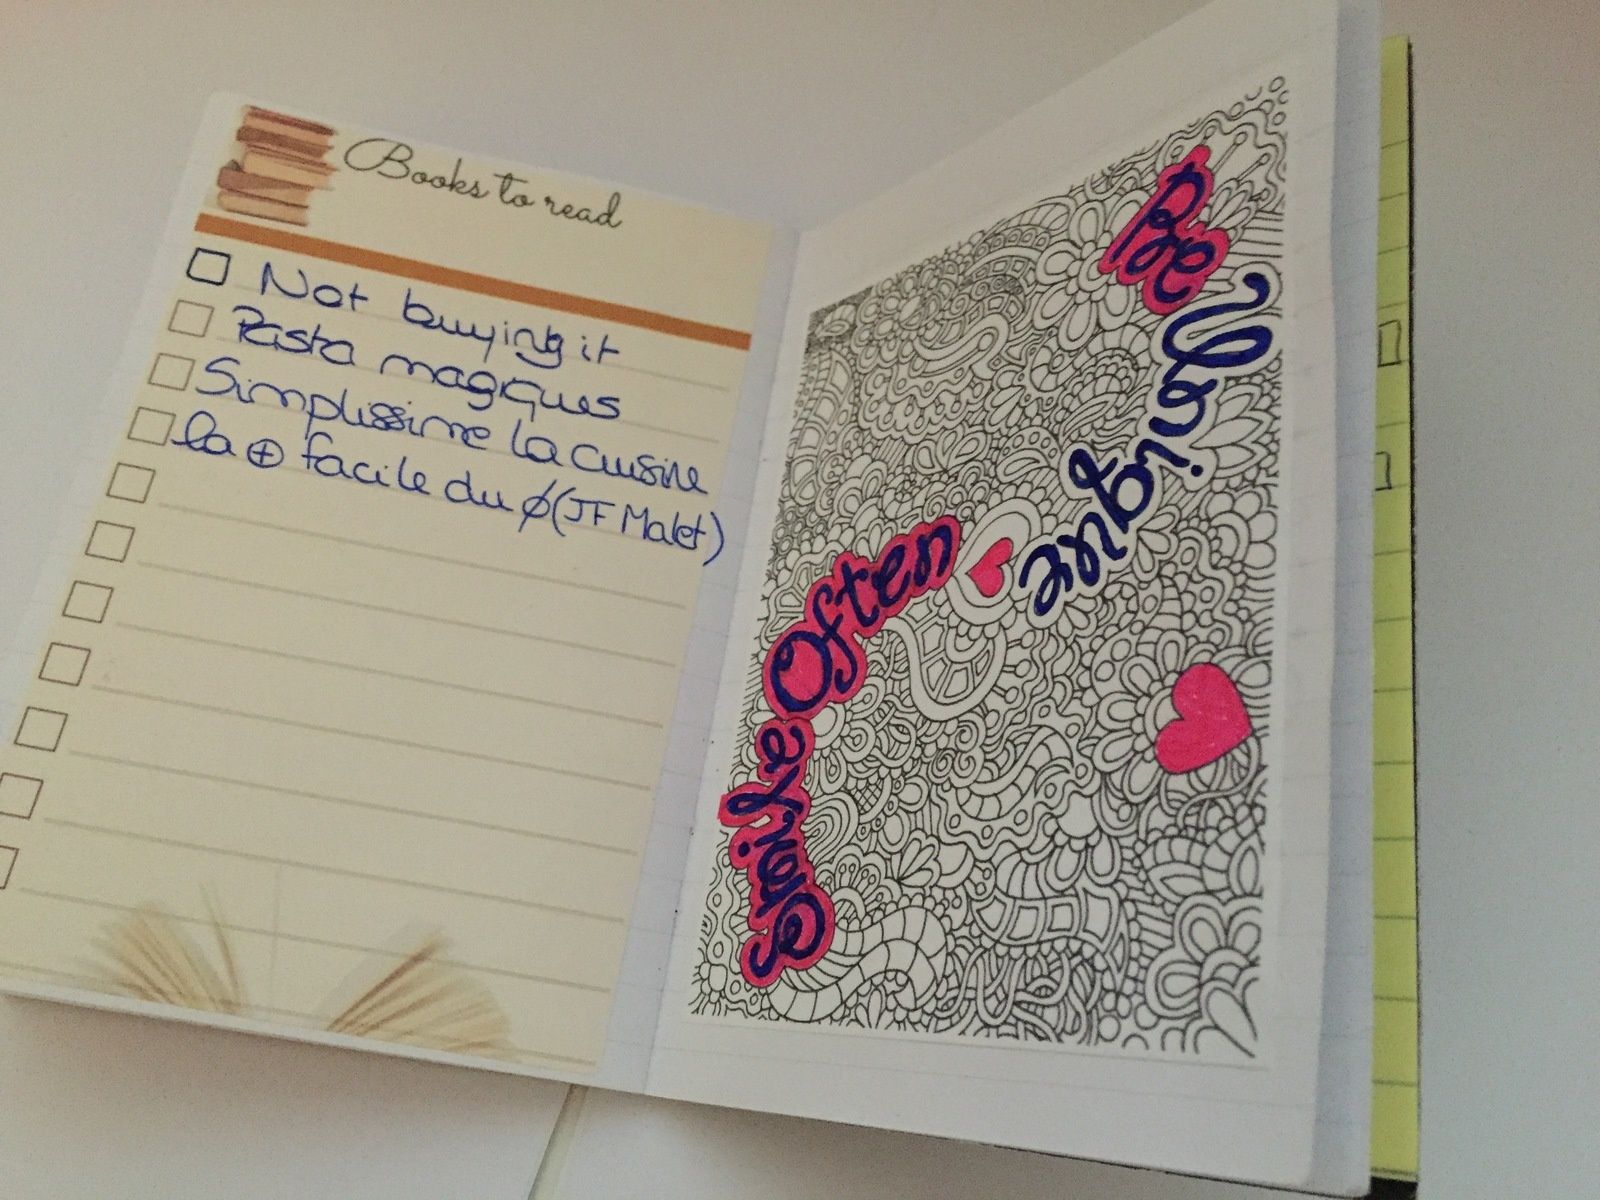 Books to read
Not buying it
Pasta magiques
Simplissime la cuisine
la ⊕ facile du ∅ (JF Malet)
Smile Often
Be Unique